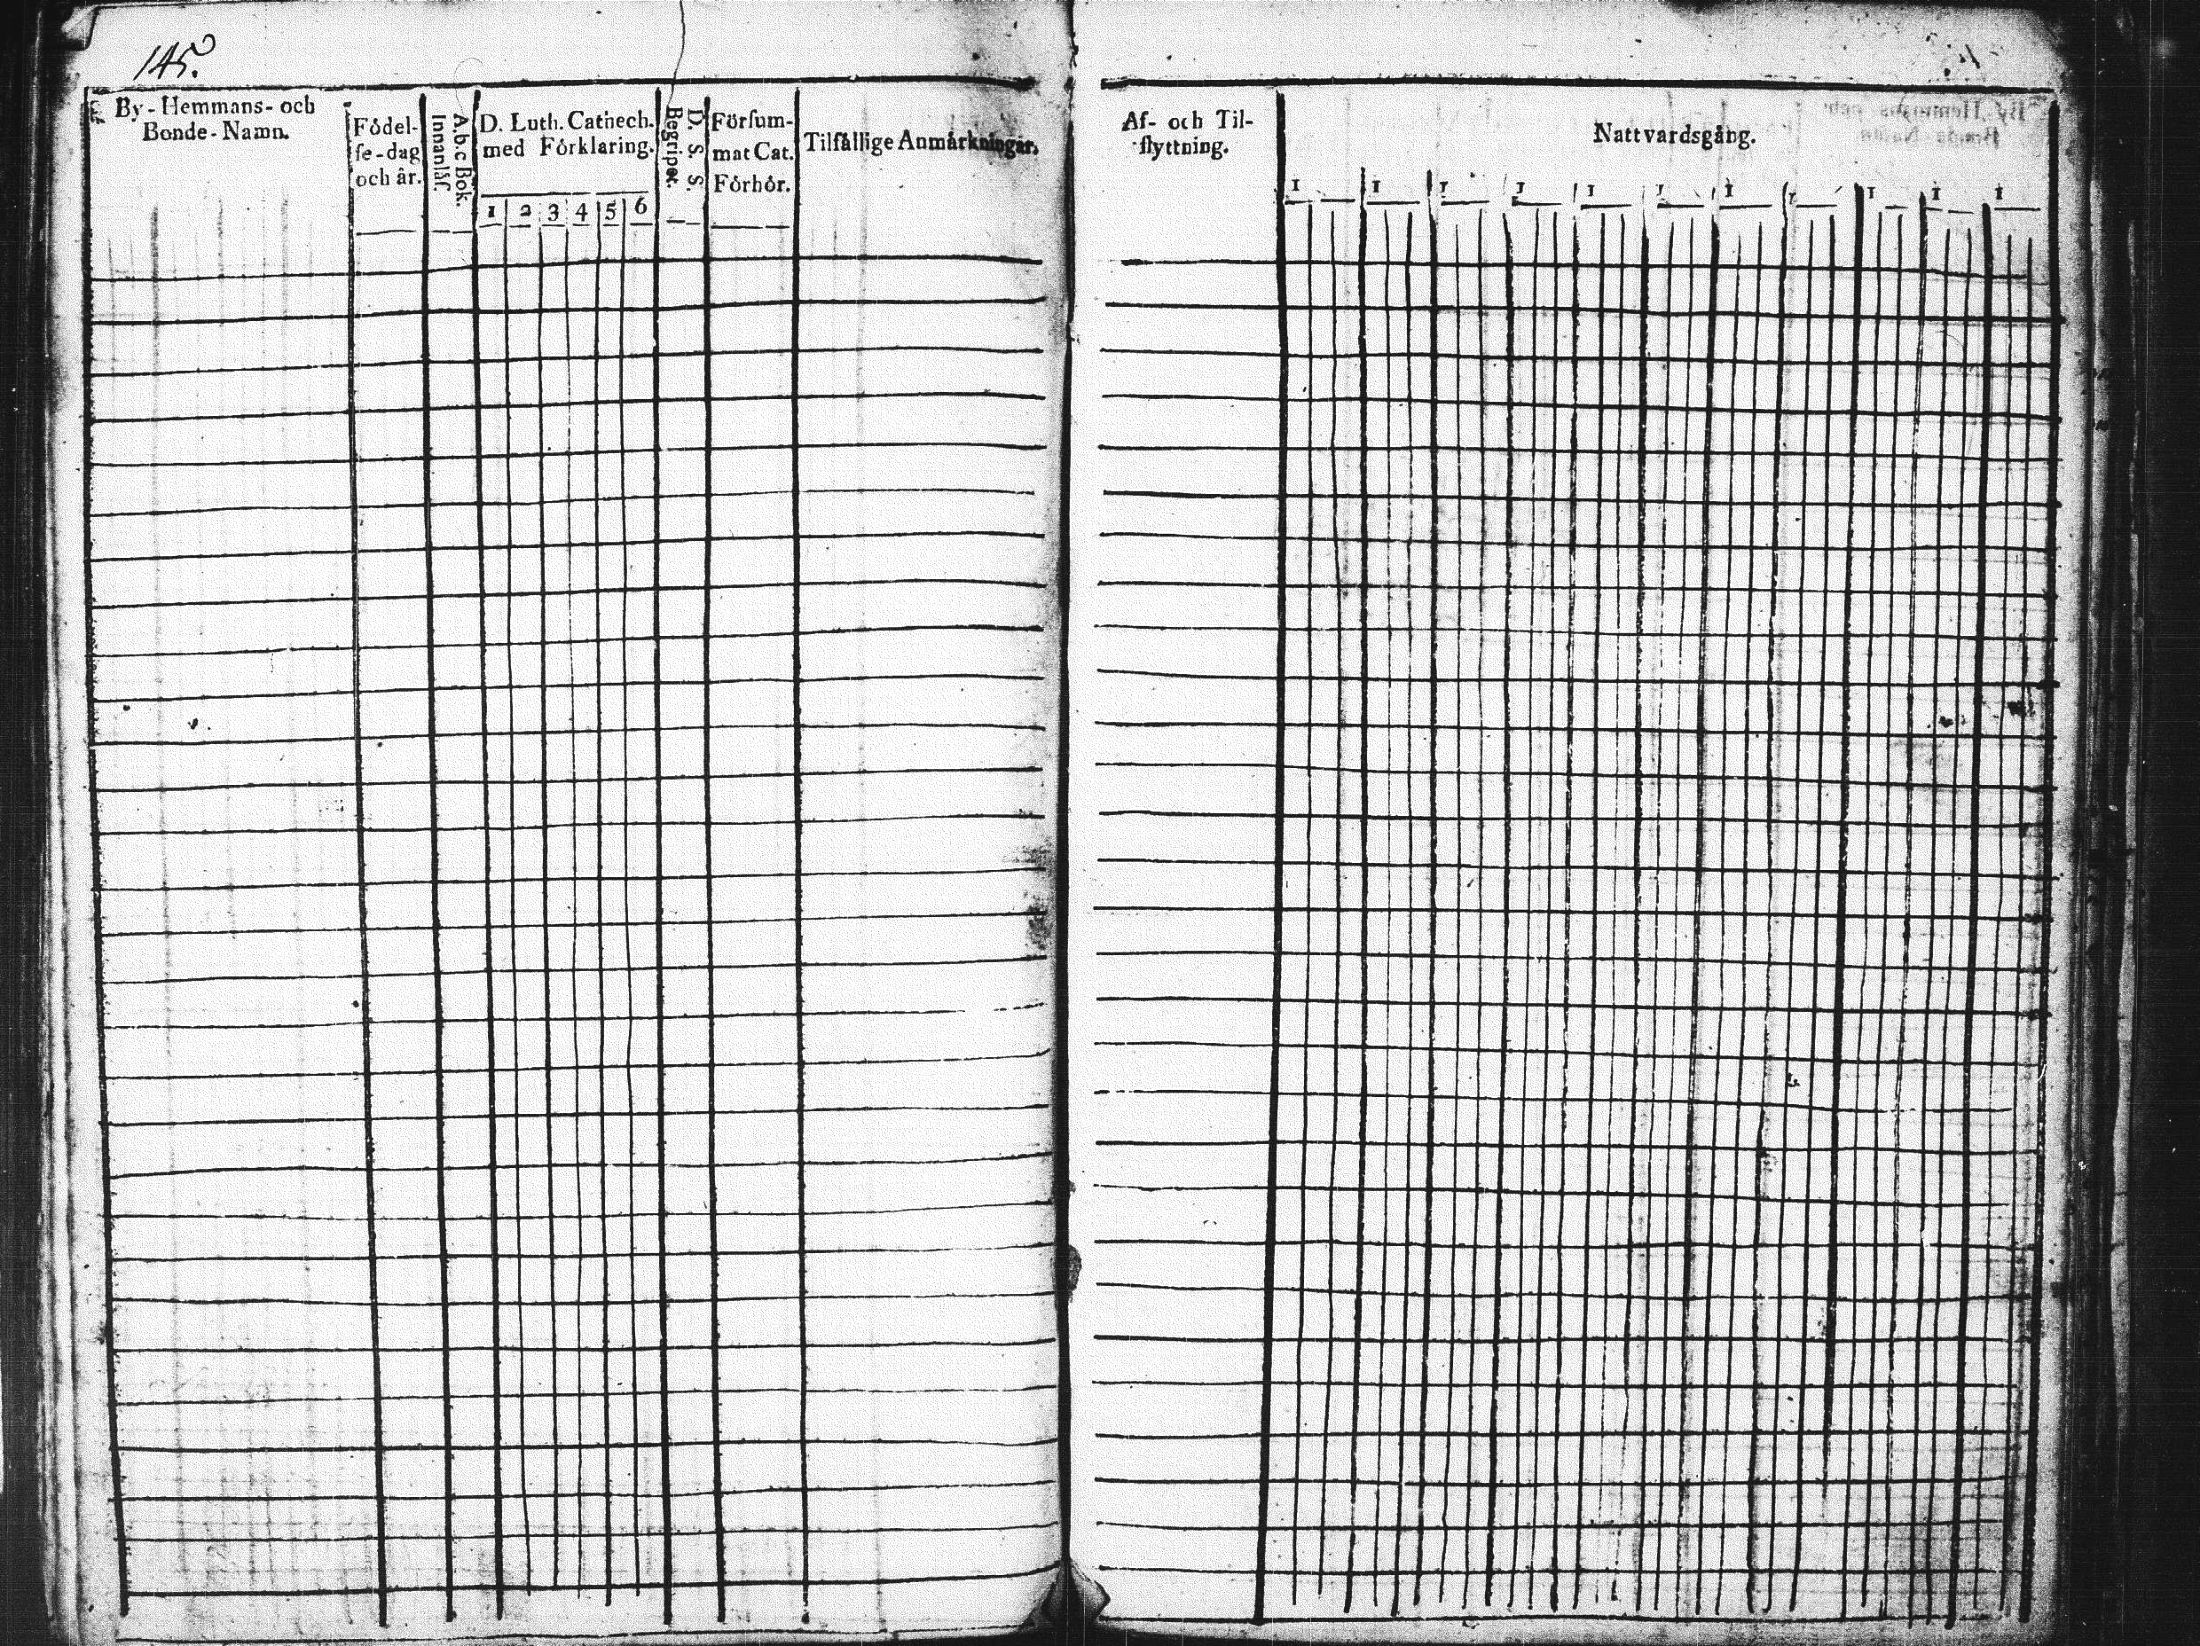 145.
By-Hemmans- och
Bonde-Namn.
Födel-
se-dag
och år.
A.b.c Bok.
Innanläs.
D. Luth. Cathech.
med Förklaring.
1 2 3 4 5 6
D. S. S.
Begriper.
Försum-
mat Cat.
Förhör.
Tilfällige Anmärkningar.
Af- och Til-
flyttning.
Nattvardsgång.
1 1 1 1 1 1 1 1 1 1 1